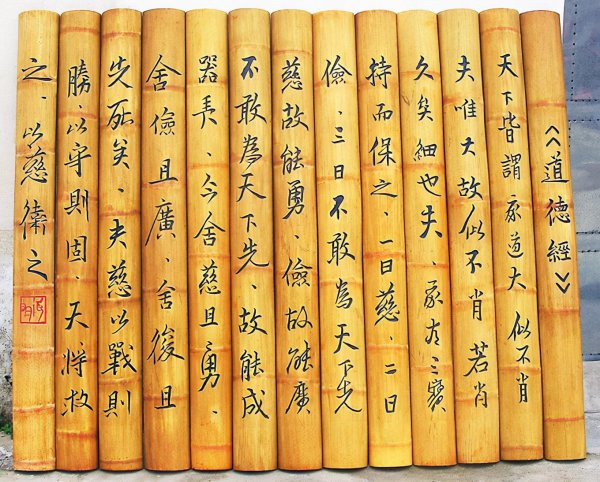 《道德經》
天下皆謂我道大似不肖
夫唯大故似不肖若肖
久矣細也夫、我有三寶
持而保之、一曰慈、二曰
儉、三曰不敢為天下先
慈故能勇、儉故能廣
不敢為天下先、故能成
器長、今舍慈且勇、
舍儉且廣、舍後且
先死矣、夫慈以戰則
勝、以守則固、天將救
之、以慈衛之